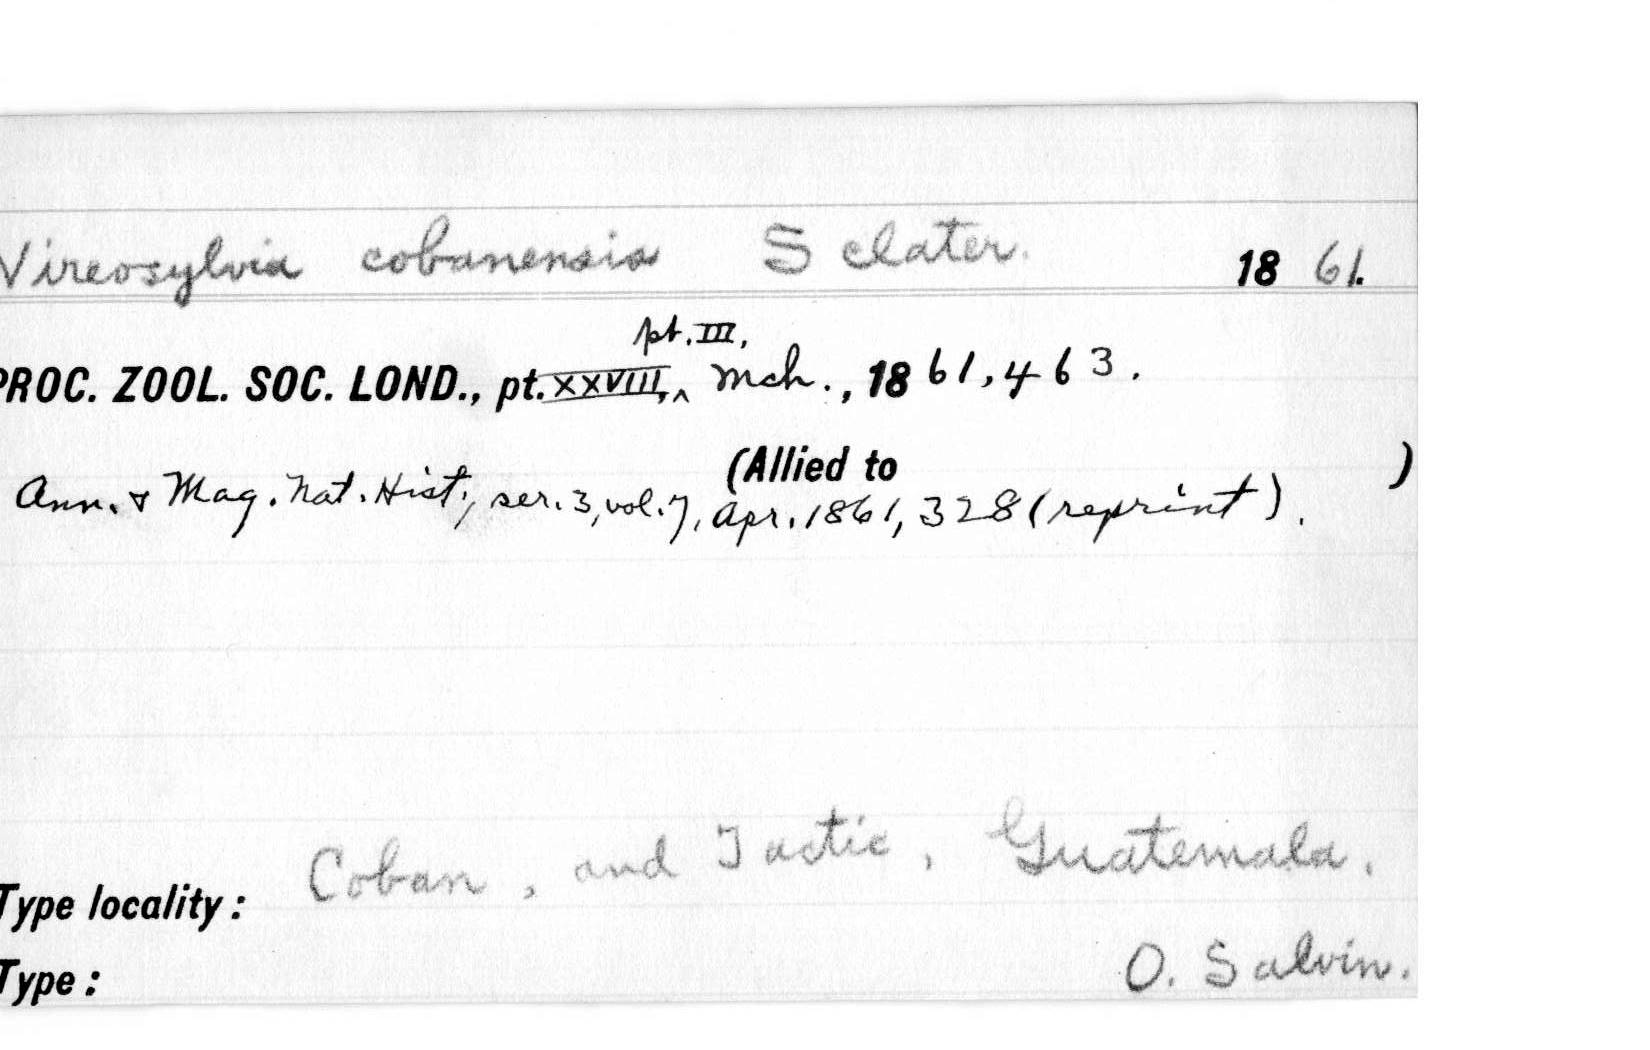 Vireosylvia cobanensis Sclater. 1861.
pt. III,
PROC. ZOOL. SOC. LOND., pt. XXVIII,‸ Mch., 1861, 463.
(Allied to )
Ann. & Mag. Nat. Hist., ser. 3, vol. 7, Apr. 1861, 328 (reprint).
Coban, and Tactic, Guatemala.
Type locality:
O. Salvin.
Type: